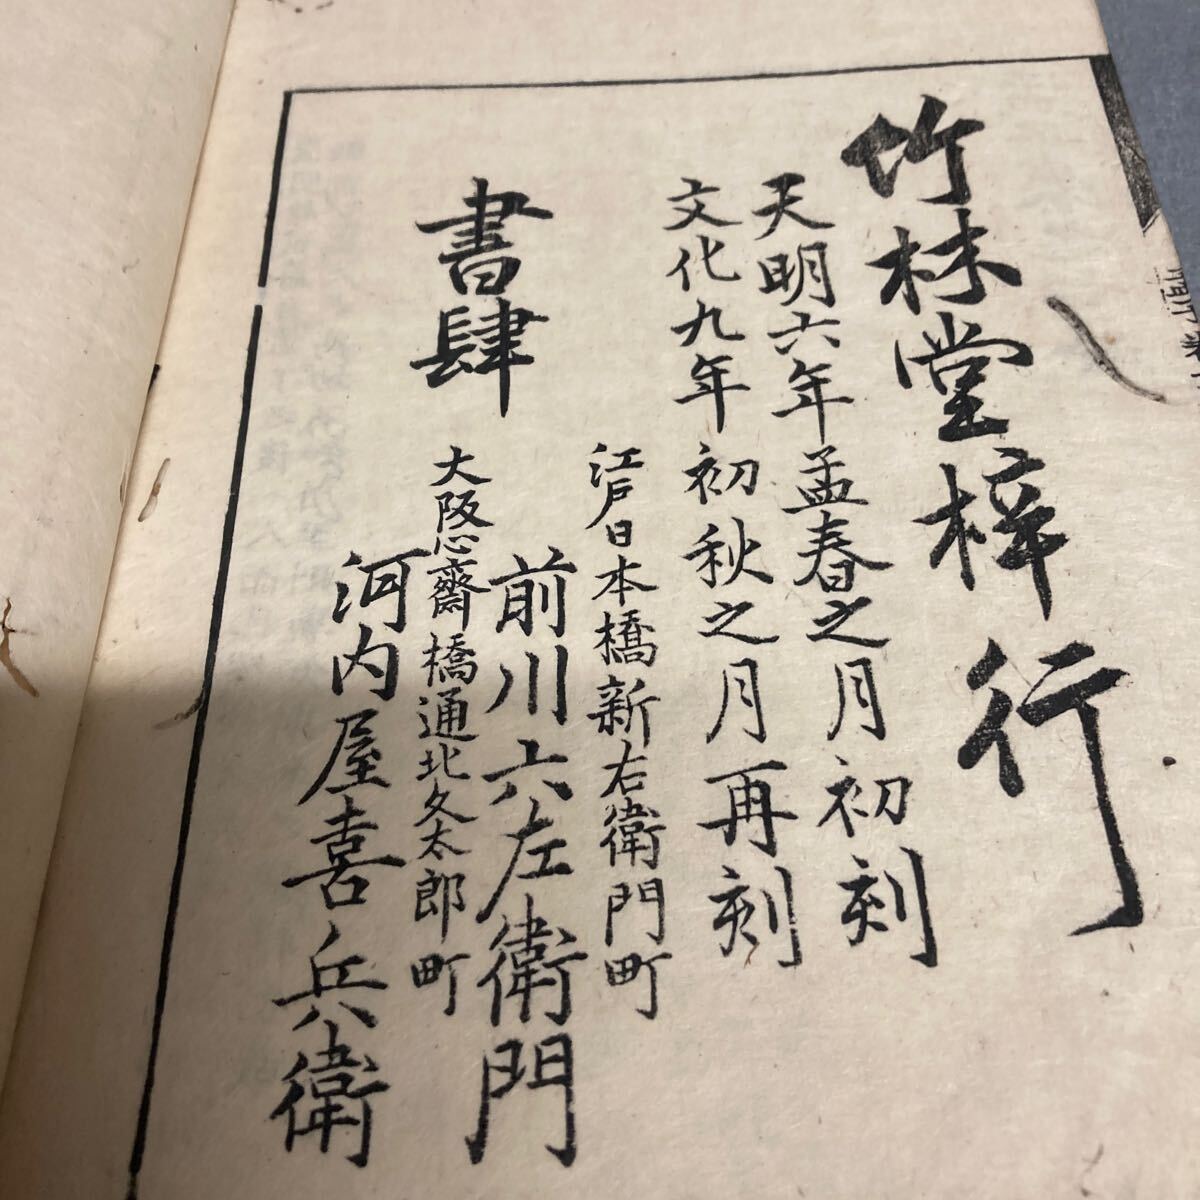 竹林堂梓行
天明六年孟春之月初刻
文化九年初秋之月再刻
書肆
江戸日本橋新右衛門町
前川六左衛門
大阪心齋橋通北久太郎町
河内屋喜兵衛